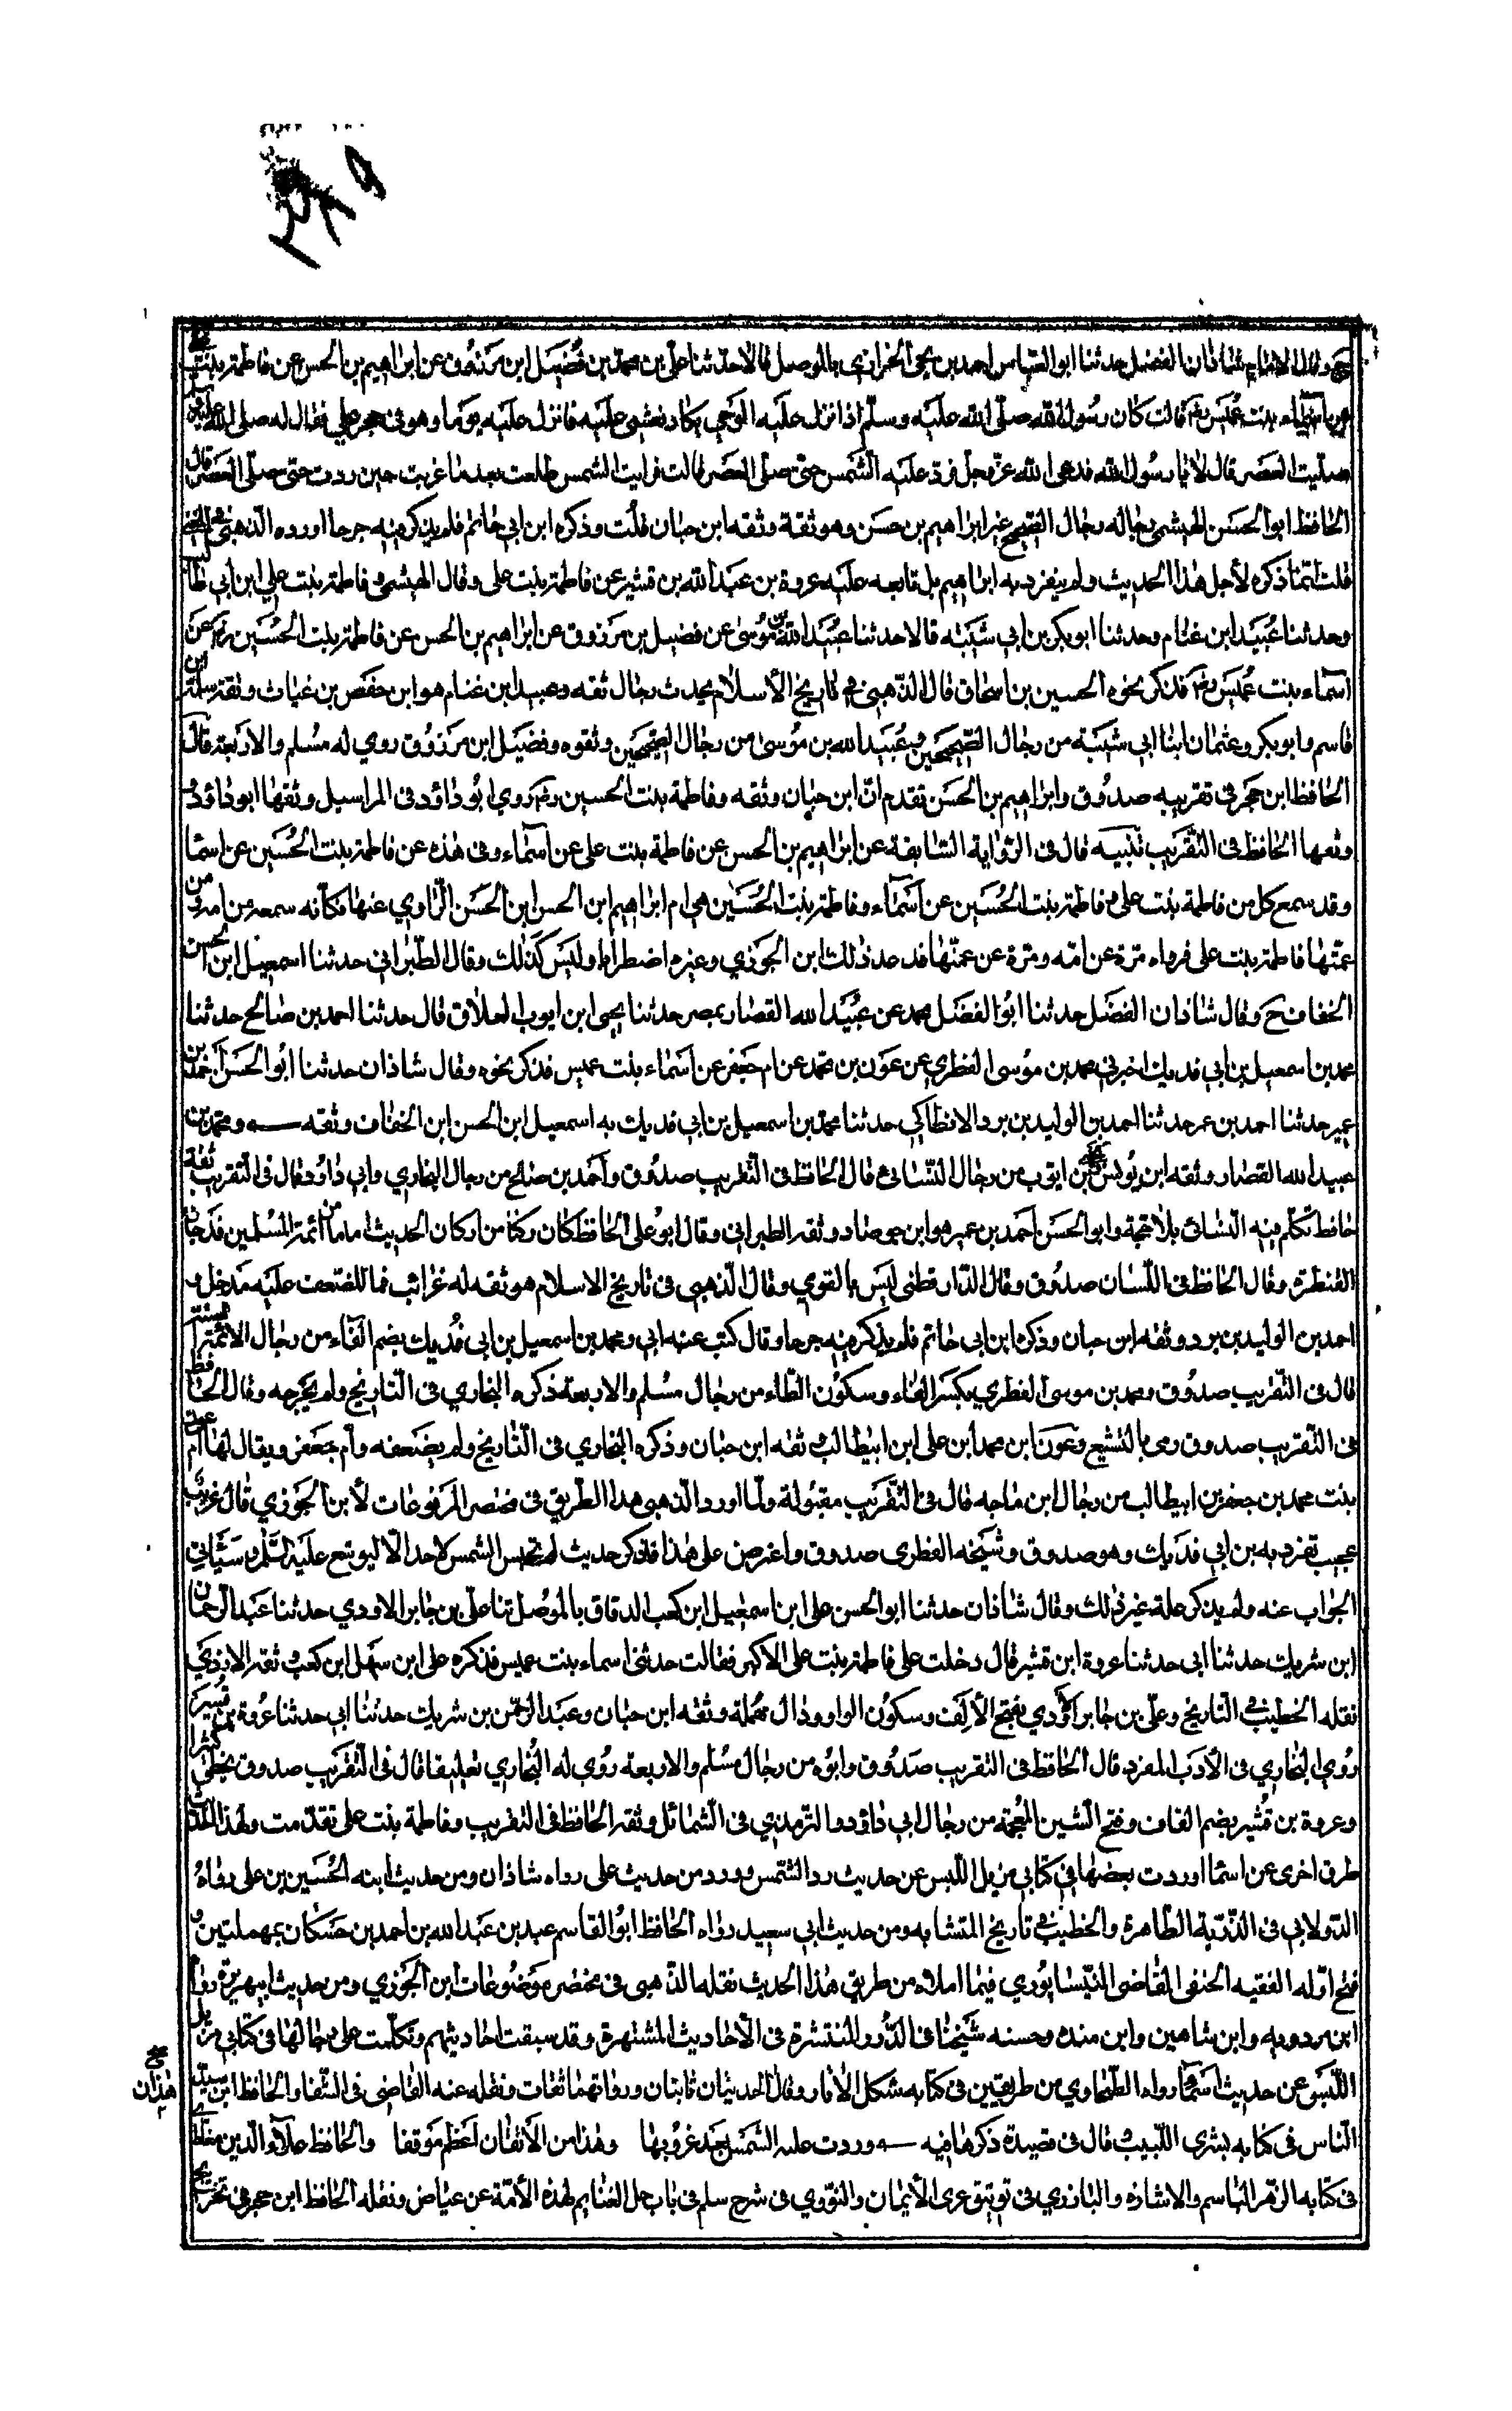 ح وقال شاذان الفضل حدثنا ابو العباس احمد بن يحيى الخرازي بالموصل قالا حدثنا علي بن محمد بن فضيل ابن مرزوق عن ابراهيم بن الحسن عن فاطمة بنت
عن اسماء بنت عميس قالت كان رسول الله صلى الله عليه وسلم اذا نزل عليه الوحي يكاد يغشى عليه فانزل عليه يوما وهو في حجر علي فقال له صلى الله عليه
صليت العصر قال لا يا رسول الله فدعى الله عز وجل فرد عليه الشمس حتى صلى العصر قالت فرايت الشمس طلعت بعد ما غربت حين ردت حتى صلى العصر قال
الحافظ ابو الحسن الهيثمي رجاله رجال الصحيح غير ابراهيم بن حسن وهو ثقة وثقه ابن حبان قلت وذكره ابن ابي حاتم فلم يذكر فيه جرحا اورده الذهبي في المغني
قلت انما ذكره لأجل هذا الحديث ولم ينفرد به ابراهيم بل تابعه عليه عروة بن عبد الله بن قشير عن فاطمة بنت على وقال الهيثمي وفاطمة بنت علي ابن ابي طالب
وحدثنا عبيد ابن غنام وحدثنا ابو بكر بن ابي شيبة قالا حدثنا عبيد الله بن موسى عن فضيل بن مرزوق عن ابراهيم بن الحسن عن فاطمة بنت الحسين عن
اسماء بنت عميس فذكر نحوه الحسين بن اسحاق قال الذهبي في تاريخ الأسلام محدث رجال ثقه وعبيد ابن غنام هو ابن حفص بن غياث وثقه سلمة ابن
قاسم وابو بكر وعثمان ابنا ابي شيبة من رجال الصحيحين وعبيد الله بن موسى من رجال الصحيحين وثقوه وفضيل ابن مرزوق روي له مسلم والاربعة قال
الحافظ ابن حجر في تقريبه صدوق وابراهيم بن الحسن تقدم ان ابن حبان وثقه وفاطمة بنت الحسين روي ابو داؤد في المراسيل وثقها ابو داؤد
وثقها الحافظ في التقريب تنبيه قال في الرواية السابقة عن ابراهيم بن الحسن عن فاطمة بنت على عن اسماء وفي هذه عن فاطمة بنت الحسين عن اسما
وقد سمع كل من فاطمة بنت على وفاطمة بنت الحسين عن اسماء وفاطمة بنت الحسين هي ام ابراهيم ابن الحسن ابن الحسن الراوي عنها فكأنه سمعه من امه ومن
عمتها فاطمة بنت على فرواه مرة عن امه ومرة عن عمتها قد عد ذلك ابن الجوزي وغيره اضطرابا وليس كذلك وقال الطبراني حدثنا اسمعيل ابن الحسن
الخفاف ح وقال شاذان الفضل حدثنا ابو الفضل محمد عن عبيد الله القصار بمصر حدثنا يحيى ابن ايوب العلاق قال حدثنا احمد بن صالح حدثنا
محمد بن اسمعيل بن ابي فديك اخبرني محمد بن موسى الفطري عن عون بن محمد عن ام جعفر عن اسماء بنت عميس فذكر نحوه وقال شاذان حدثنا ابو الحسن احمد بن
عمير حدثنا احمد بن عمر حدثنا احمد بن الوليد بن برد الانطاكي حدثنا محمد بن اسمعيل بن ابي فديك به اسمعيل ابن الحسن ابن الخفاف وثقه ومحمد بن
عبيد الله القصار وثقه ابن يونس بن ايوب من رجال النسائى قال الحافظ في التقريب صدوق واحمد بن صالح من رجال البخاري وابي داؤد قال في التقريب ثقة
حافظ تكلم فيه النسائى بلا حجة وابو الحسن احمد بن عمير هو ابن جوصا وثقه الطبراني وقال ابو على الحافظ كان ركنا من اركان الحديث اماما من أئمة المسلمين قد جاز
القنطرة وقال الحافظ في اللسان صدوق وقال الدارقطنى ليس بالقوي وقال الذهبي في تاريخ الاسلام هو ثقه له غرائب فما للضعف عليه مدخل و
احمد بن الوليد بن برد وثقه ابن حبان وذكره ابن ابي حاتم فلم يذكر فيه جرحا وقال كتب عنه ابي ومحمد بن اسمعيل بن ابي فديك بضم الفاء من رجال الائمة الستة
قال في التقريب صدوق ومحمد بن موسى الفطري بكسر الفاء وسكون الطاء من رجال مسلم والاربعة ذكره البخاري في التاريخ ولم يجرحه وقال الحافظ
في التقريب صدوق رمي بالتشيع وعون ابن محمد ابن على ابن ابيطالب وثقه ابن حبان وذكره البخاري في التاريخ ولم يضعفه وام جعفر ويقال لها ام عون
بنت محمد بن جعفر بن ابيطالب من رجال ابن ماجه قال في التقريب مقبولة ولما اورد الذهبي هذا الطريق في مختصر الموضوعات لأبن الجوزي قال غريب
عجيب تفرد به بن ابي فديك وهو صدوق وشيخه الفطرى صدوق واعترض على هذا فذكر حديث لم تحبس الشمس لاحد الا ليوشع عليه السلم وسياتي
الجواب عنه ولم يذكر علة غير ذلك وقال شاذان حدثنا ابو الحسن على ابن اسمعيل ابن كعب الدقاق بالموصل ثنا علي بن جابر الاودي حدثنا عبد الرحمان
ابن شريك حدثنا ابى حدثنا عروة ابن قشير قال دخلت على فاطمة بنت على الاكبر فقالت حدثتني اسماء بنت عميس فذكره على ابن سهل ابن كعب وثقه الازدي
نقله الخطيب في التاريخ وعلي بن جابر الاودي بفتح الألف وسكون الواو ودال مهملة وثقه ابن حبان وعبد الرحمن بن شريك حدثنا ابي حدثنا عروة بن قشير
روى البخاري في الأدب المفرد قال الحافظ في التقريب صدوق وابوه من رجال مسلم والاربعه روى له البخاري تعليقا قال في التقريب صدوق يخطى كثيرا
وعروة بن قشير بضم القاف وفتح الشين المعجمة من رجال ابي داؤد والترمذي في الشمائل وثقه الحافظ في التقريب وفاطمة بنت على تقدمت ولهذا الحديث
طرق اخرى عن اسما اوردت بعضها في كتابي مزيل اللبس عن حديث رد الشمس وورد من حديث على رواه شاذان ومن حديث ابنه الحسين بن على رواه
الدولابي في الذرية الطاهرة والخطيب في تاريخ المتشابه ومن حديث ابي سعيد رواه الحافظ ابو القاسم عبد بن عبد الله بن احمد بن حسكان بمهملتين و
فتح اوله الفقيه الحنفى القاضى النيسابوري فيما املاه من طريق هذا الحديث نقله الذهبي في مختصر موضوعات ابن الجوزي ومن حديث ابيهريرة رواه
ابن مردويه وابن شاهين وابن منده وحسنه شيخنا في الدرر المنتشرة في الاحاديث المشتهرة وقد سبقت احاديثهم وتكلمت على رجالها في كتابي مزيل
اللبس عن حديث اسما رواه الطحاوي من طريقين في كتابه مشكل الاثار وقال الحديثان ثابتان ورواتهما ثقات ونقله عنه القاضى في الشفا والحافظ ابن سيد
هذان
الناس في كتابه بشرى اللبيب وقال في قصيدة ذكرها فيه وردت عليه الشمس بعد غروبها وهذا من الأتقان اعظم موقفا والحافظ علاؤ الدين مغلطاي
في كتابه الزهر الباسم والاشاره والبازري في توثيق عرى الأيمان والنووي في شرح مسلم في باب حل الغنايم لهذه الأمة عن عياض ونقله الحافظ ابن حجر في تخريج